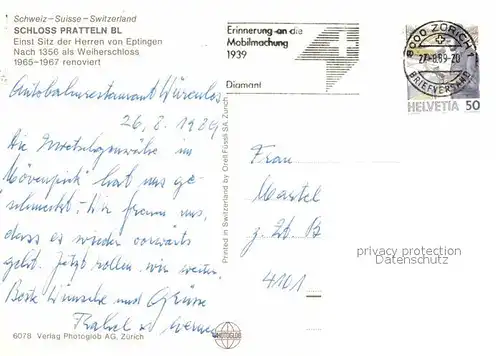 Schweiz–Suisse–Switzerland
SCHLOSS PRATTELN BL
Einst Sitz der Herren von Eptingen
Nach 1356 als Weiherschloss
1965–1967 renoviert
Erinnerung an die
Mobilmachung
1939
Diamant
8000 ZÜRICH
BRIEFVERSAND
HELVETIA 50
Autobahnrestaurant Würenlos
26.8.1989
Die im
"Mövenpick" hat uns ge-
schmeckt. Wir freuen uns,
dass es wieder vorwärts
geht. Jetzt rollen wir weiter.
Beste Wünsche und Grüsse
Printed in Switzerland by Orell Füssli SA, Zürich
Frau
z. Zt. B
4101
privacy protection
Datenschutz
6078 Verlag Photoglob AG, Zürich
PHOTOGLOB